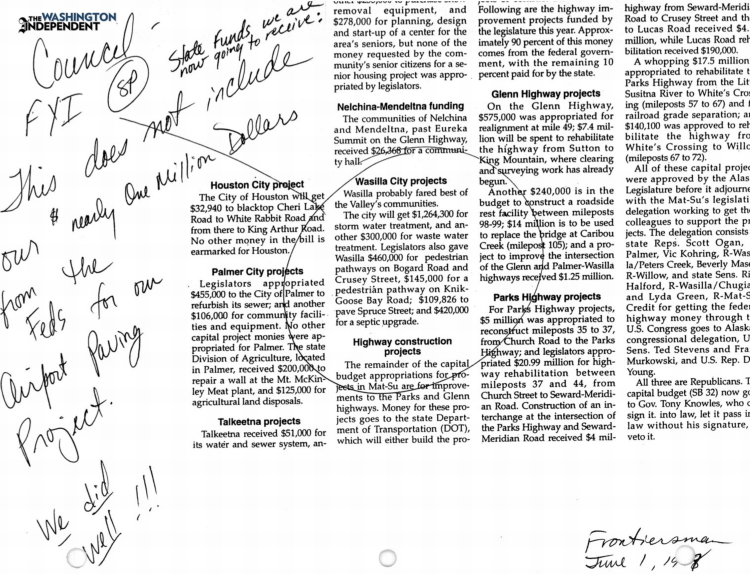 THE WASHINGTON
INDEPENDENT
Council -
FYI
SP
State funds we are
now going to receive:
This does not include
our $ nearly One Million Dollars
from the
Feds for our
Airport Paving
Project.
We did
well!!!
Houston City project
The City of Houston will get
$32,940 to blacktop Cheri Lake
Road to White Rabbit Road and
from there to King Arthur Road.
No other money in the bill is
earmarked for Houston.
Palmer City projects
Legislators appropriated
$455,000 to the City of Palmer to
refurbish its sewer; and another
$106,000 for community facili-
ties and equipment. No other
capital project monies were ap-
propriated for Palmer. The state
Division of Agriculture, located
in Palmer, received $200,000 to
repair a wall at the Mt. McKin-
ley Meat plant, and $125,000 for
agricultural land disposals.
Talkeetna projects
Talkeetna received $51,000 for
its water and sewer system, an-
removal equipment, and
$278,000 for planning, design
and start-up of a center for the
area's seniors, but none of the
money requested by the com-
munity's senior citizens for a se-
nior housing project was appro-
priated by legislators.
Nelchina-Mendeltna funding
The communities of Nelchina
and Mendeltna, past Eureka
Summit on the Glenn Highway,
received $26,368 for a communi-
ty hall.
Wasilla City projects
Wasilla probably fared best of
the Valley's communities.
The city will get $1,264,300 for
storm water treatment, and an-
other $300,000 for waste water
treatment. Legislators also gave
Wasilla $460,000 for pedestrian
pathways on Bogard Road and
Crusey Street, $145,000 for a
pedestrian pathway on Knik-
Goose Bay Road; $109,826 to
pave Spruce Street; and $420,000
for a septic upgrade.
Highway construction
projects
The remainder of the capital
budget appropriations for pro-
jects in Mat-Su are for improve-
ments to the Parks and Glenn
highways. Money for these pro-
jects goes to the state Depart-
ment of Transportation (DOT),
which will either build the pro-
Following are the highway im-
provement projects funded by
the legislature this year. Approx-
imately 90 percent of this money
comes from the federal govern-
ment, with the remaining 10
percent paid for by the state.
Glenn Highway projects
On the Glenn Highway,
$575,000 was appropriated for
realignment at mile 49; $7.4 mil-
lion will be spent to rehabilitate
the highway from Sutton to
King Mountain, where clearing
and surveying work has already
begun.
Another $240,000 is in the
budget to construct a roadside
rest facility between mileposts
98-99; $14 million is to be used
to replace the bridge at Caribou
Creek (milepost 105); and a pro-
ject to improve the intersection
of the Glenn and Palmer-Wasilla
highways received $1.25 million.
Parks Highway projects
For Parks Highway projects,
$5 million was appropriated to
reconstruct mileposts 35 to 37,
from Church Road to the Parks
Highway; and legislators appro-
priated $20.99 million for high-
way rehabilitation between
mileposts 37 and 44, from
Church Street to Seward-Meridi-
an Road. Construction of an in-
terchange at the intersection of
the Parks Highway and Seward-
Meridian Road received $4 mil-
highway from Seward-Meridi
Road to Crusey Street and th
to Lucas Road received $4.
million, while Lucas Road reh
bilitation received $190,000.
A whopping $17.5 million
appropriated to rehabilitate t
Parks Highway from the Lit
Susitna River to White's Cros
ing (mileposts 57 to 67) and f
railroad grade separation; an
$140,100 was approved to reh
bilitate the highway fro
White's Crossing to Willo
(mileposts 67 to 72).
All of these capital projec
were approved by the Alas
Legislature before it adjourne
with the Mat-Su's legislati
delegation working to get th
colleagues to support the pr
jects. The delegation consists
state Reps. Scott Ogan,
Palmer, Vic Kohring, R-Was
la/Peters Creek, Beverly Mase
R-Willow, and state Sens. Ri
Halford, R-Wasilla/Chugia
and Lyda Green, R-Mat-S
Credit for getting the feder
highway money through t
U.S. Congress goes to Alask
congressional delegation, U
Sens. Ted Stevens and Fra
Murkowski, and U.S. Rep. D
Young.
All three are Republicans. T
capital budget (SB 32) now go
to Gov. Tony Knowles, who c
sign it. into law, let it pass in
law without his signature,
veto it.
Frontiersman
June 1, 19